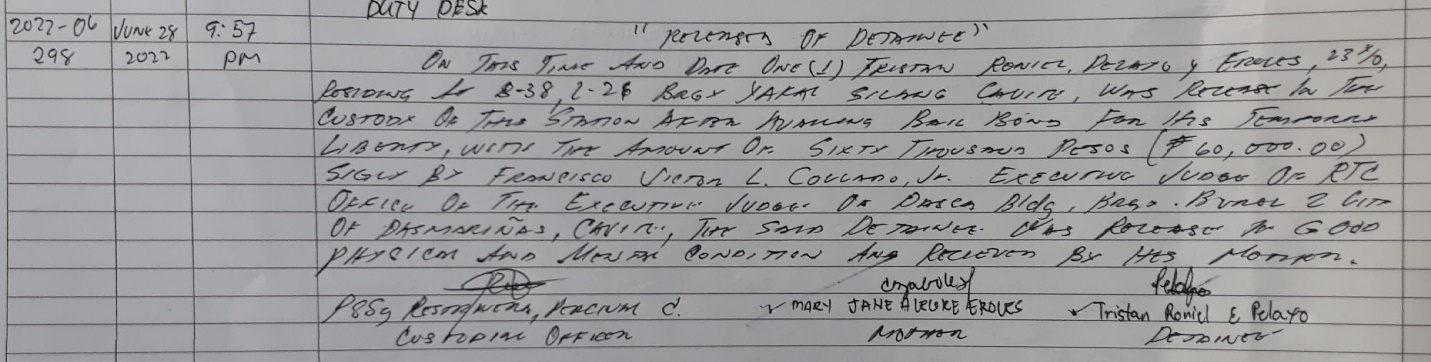 DUTY DESK
2022-06 JUNE 28 9:57 "RELEASED OF DETAINEE"
298 2022 PM ON THIS TIME AND DATE ONE (1) TRISTAN RONIEL, PELAYO y EROLES, 23 Y/O,
RESIDING AT B-38, L-26 BRGY YAKAL SILANG CAVITE, WAS RELEASE IN THE
CUSTODY OF THIS STATION AFTER AVAILING BAIL BOND FOR HIS TEMPORARY
LIBERTY, WITH THE AMOUNT OF SIXTY THOUSAND PESOS (₱60,000.00)
SIGN BY FRANCISCO VICTOR L. COLLADO, JR. EXECUTIVE JUDGE OF RTC
OFFICE OF THE EXECUTIVE JUDGE OF Bldg, BRGY. BUROL 2 CITY
OF DASMARIÑAS, CAVITE, THE SAID DETAINEE WAS RELEASE IN GOOD
PHYSICAL AND MENTAL CONDITION AND RECIEVED BY HIS MOTHER.
PSSg C. MARY JANE EROLES Tristan Roniel E Pelayo
CUSTODIAL OFFICER MOTHER DETAINEE